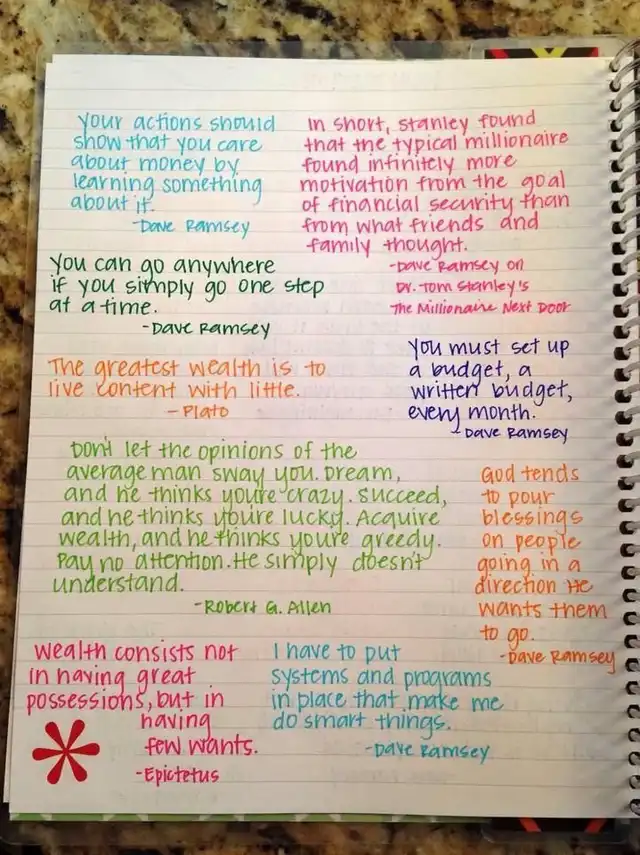 Your actions should
show that you care
about money by
learning something
about it.
-Dave Ramsey
In short, Stanley found
that the typical millionaire
found infinitely more
motivation from the goal
of financial security than
from what friends and
family thought.
-Dave Ramsey on
Dr. Tom Stanley's
The Millionaire Next Door
You can go anywhere
if you simply go one step
at a time.
-Dave Ramsey
The greatest wealth is to
live content with little.
-Plato
You must set up
a budget, a
written budget,
every month.
-Dave Ramsey
Don't let the opinions of the
average man sway you. Dream,
and he thinks you're crazy. Succeed,
and he thinks you're lucky. Acquire
wealth, and he thinks you're greedy.
Pay no attention. He simply doesn't
understand.
-Robert G. Allen
God tends
to pour
blessings
on people
going in a
direction He
wants them
to go.
-Dave Ramsey
Wealth consists not
in having great
possessions, but in
having
few wants.
-Epictetus
I have to put
systems and programs
in place that make me
do smart things.
-Dave Ramsey